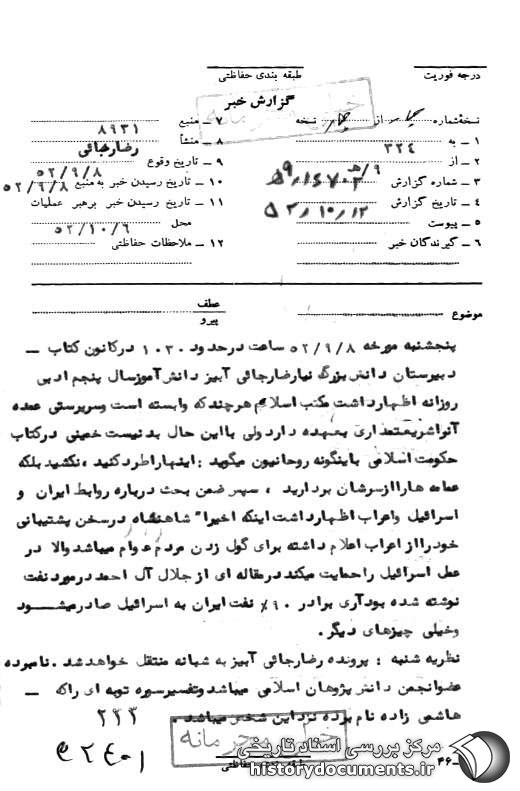 درجه فوریت
طبقه بندی حفاظتی
گزارش خبر
خیلی محرمانه
نسخه شماره از نسخه
۱ ـ به ۳۲۴
۲ ـ از ۹/هـ
۳ ـ شماره گزارش
۴ ـ تاریخ گزارش ۵۲/۱۰/۱۲
۵ ـ پیوست
۶ ـ گیرندگان خبر
۷ ـ منبع ۸۹۳۱
۸ ـ منشأ رضا رجائی
۹ ـ تاریخ وقوع ۵۲/۹/۸
۱۰ ـ تاریخ رسیدن خبر به منبع ۵۲/۹/۸
۱۱ ـ تاریخ رسیدن خبر برهبر عملیات
محل ۵۲/۱۰/۶
۱۲ ـ ملاحظات حفاظتی
موضوع
عطف
پیرو
پنجشنبه مورخه ۵۲/۹/۸ ساعت درحدود ۱۰۳۰ درکانون کتاب ـ
دبیرستان دانش بزرگ نیا رضا رجائی آبیز دانش آموز سال پنجم ادبی
روزانه اظهارداشت مکتب اسلام هرچند که وابسته است وسرپرستی عمده
آنرا شریعتمداری بعهده دارد ولی بااین حال بد نیست خمینی درکتاب
حکومت اسلامی باینگونه روحانیون میگوید : اینهارا طرد کنید ، نکشید بلکه
عمامه ها را ازسرشان بردارید ، سپس ضمن بحث درباره روابط ایران و
اسرائیل واعراب اظهارداشت اینکه اخیرا" شاهنشاه درسخن پشتیبانی
خودرا از اعراب اعلام داشته برای گول زدن مردم عوام میباشد والا در
عمل اسرائیل راحمایت میکند درمقاله ای از جلال آل احمد درمورد نفت
نوشته شده بود آری برادر ۹۰٪ نفت ایران به اسرائیل صادرمیشــــود
وخیلی چیزهای دیگر .
نظریه شنبه : پرونده رضا رجائی آبیز به شبانه منتقل خواهد شد . نامبرده
عضو انجمن دانش پژوهان اسلامی میباشد وتفسیر سوره توبه ای راکه ـ
هاشمی زاده نام برده نزد این شخص میباشد .
۲۲۳
خیلی محرمانه
طبقه بندی حفاظتی
۴۶ـ
مرکز بررسی اسناد تاریخی
historydocuments.ir